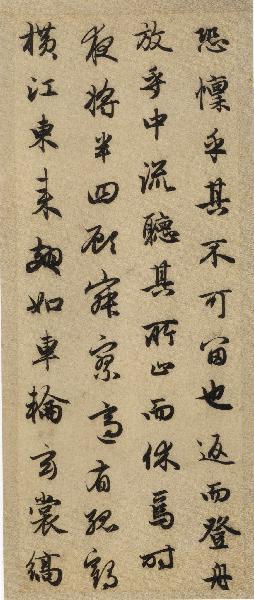 恐凜乎其不可留也返而登舟
放乎中流聽其所止而休焉時
夜將半四顧寂寥適有孤鶴
橫江東來翅如車輪玄裳縞